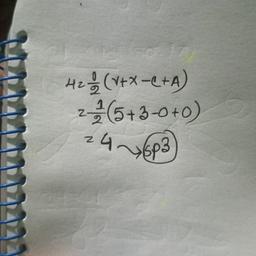 H = 1/2 (V+X-C+A)
= 1/2 (5+3-0+0)
= 4 → sp3